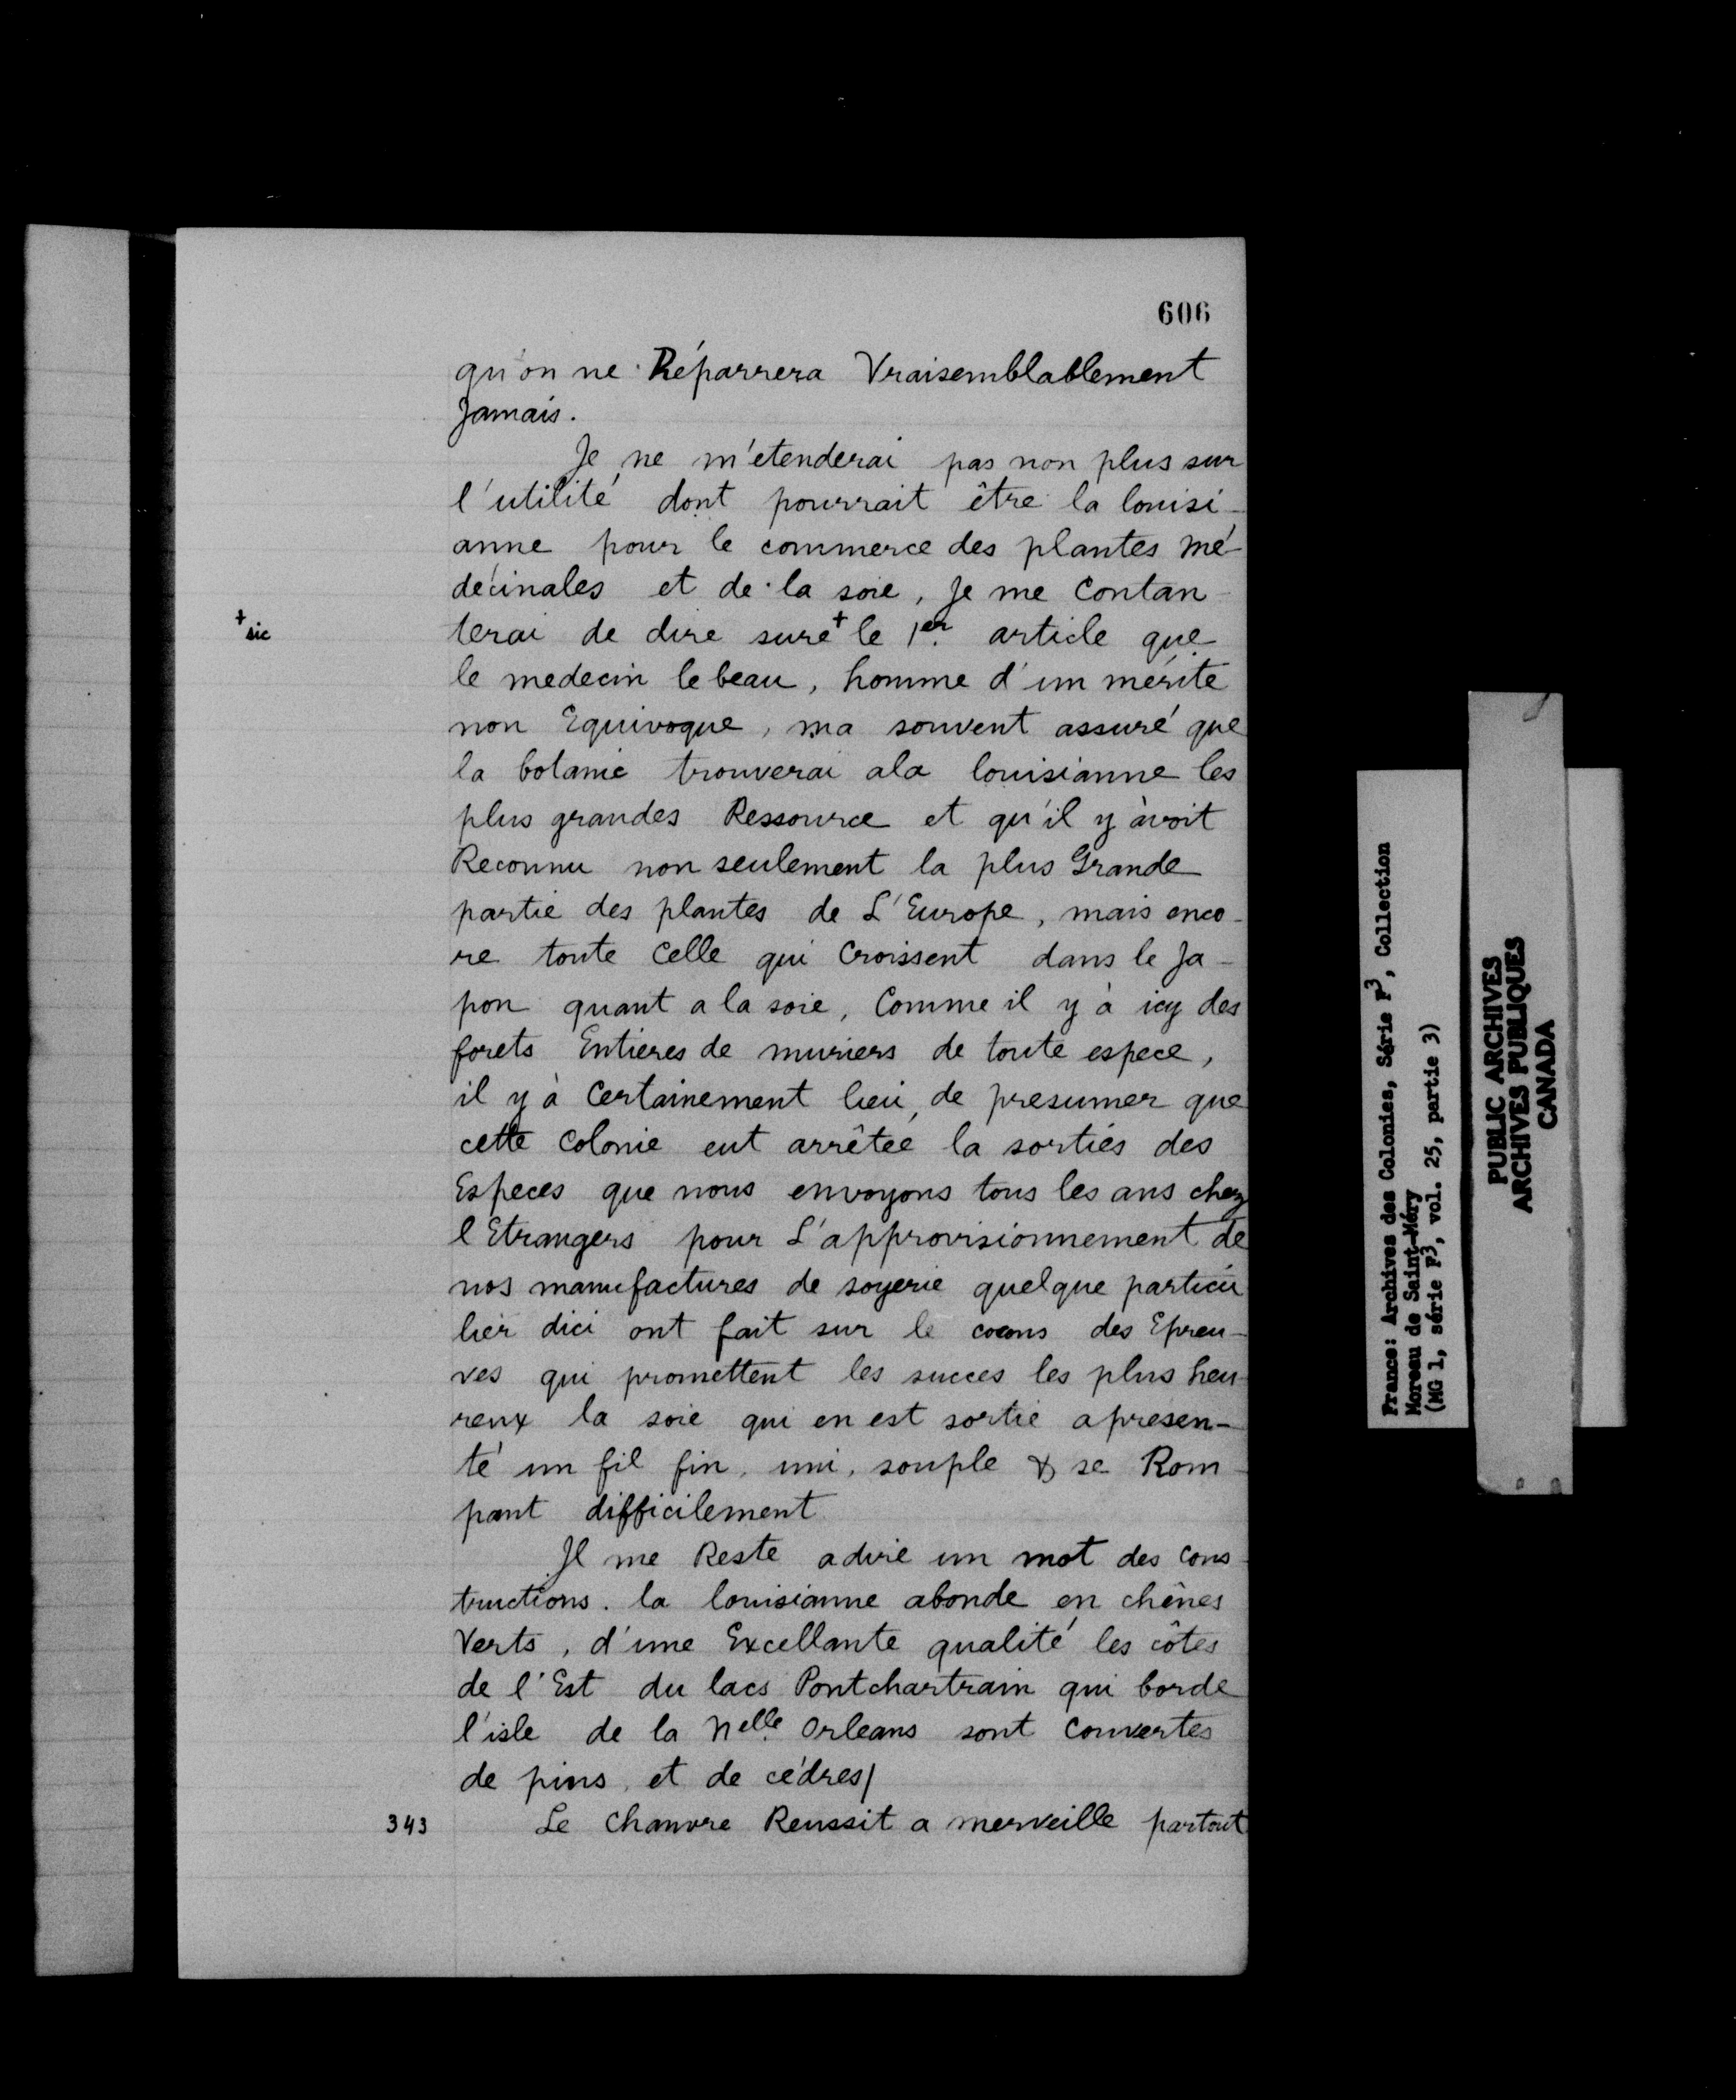 606
qu'on ne Réparrera Vraisemblablement
Jamais.
Je ne m'etenderai pas non plus sur
l'utilité dont pourrait être la louisi-
anne pour le commerce des plantes mé-
decinales et de la soie, Je me Contan-
+ sic
terai de dire sure + le 1er. article que
le medecin le beau, homme d'un mérite
non Equivoque, ma souvent assuré que
la botanie trouverai ala louisianne les
plus grandes Ressource et qu'il y àvoit
Reconnu non seulement la plus Grande
partie des plantes de L'Europe, mais enco-
re toute Celle qui Croissent dans le Ja-
pon quant a la soie, Comme il y à icy des
forets Entieres de muriers de toute espece,
il y à Certainement lieu, de presumer que
cette Colonie eut arrêtée la sorties des
Especes que nous envoyons tous les ans chez
l Etrangers pour L'approvisionnement de
nos manufactures de soyerie quelque particu
lier dici ont fait sur le cocons des Epreu-
ves qui promettent les succes les plus heu-
reux la soie qui en est sortie apresen-
té un fil fin, uni, souple & se Rom-
pant difficilement
Il me Reste adire un mot des Cons-
tructions. la louisianne abonde en chênes
Verts, d'une Excellante qualité les côtes
de l'Est du lacs Pontchartrain qui borde
l'isle de la Nelle. Orleans sont Couvertes
de pins, et de cédres/
343
Le Chanvre Reussit a merveille partout
France: Archives des Colonies, Série F3, Collection
Moreau de Saint-Méry
(MG 1, série F3, vol. 25, partie 3)
PUBLIC ARCHIVES
ARCHIVES PUBLIQUES
CANADA